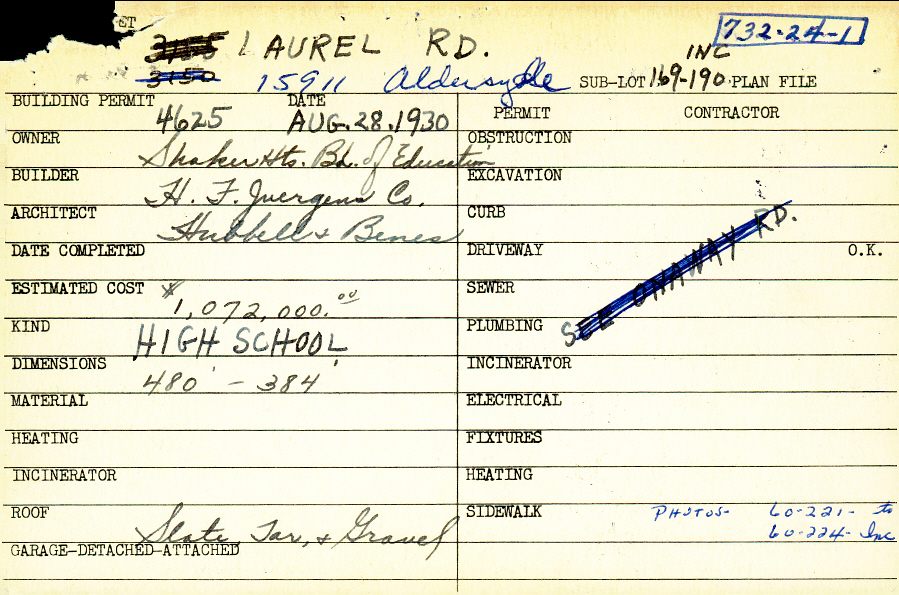 ET
732-24-1
LAUREL RD. INC
3150
15911 Aldersyde SUB-LOT 169-190 PLAN FILE
BUILDING PERMIT 4625 DATE AUG. 28. 1930
OWNER Shaker Hts. Bd. of Education
BUILDER H. F. Juergens Co.
ARCHITECT Hubbell & Benes
DATE COMPLETED
ESTIMATED COST $1,072,000.00
KIND HIGH SCHOOL
DIMENSIONS 480' - 384'
MATERIAL
HEATING
INCINERATOR
ROOF Slate, Tar, & Gravel
GARAGE-DETACHED-ATTACHED
PERMIT CONTRACTOR
OBSTRUCTION
EXCAVATION
CURB
DRIVEWAY O.K.
SEWER
SEE ONAWAY RD.
PLUMBING
INCINERATOR
ELECTRICAL
FIXTURES
HEATING
SIDEWALK PHOTOS- 60-221- to
60-224- Inc